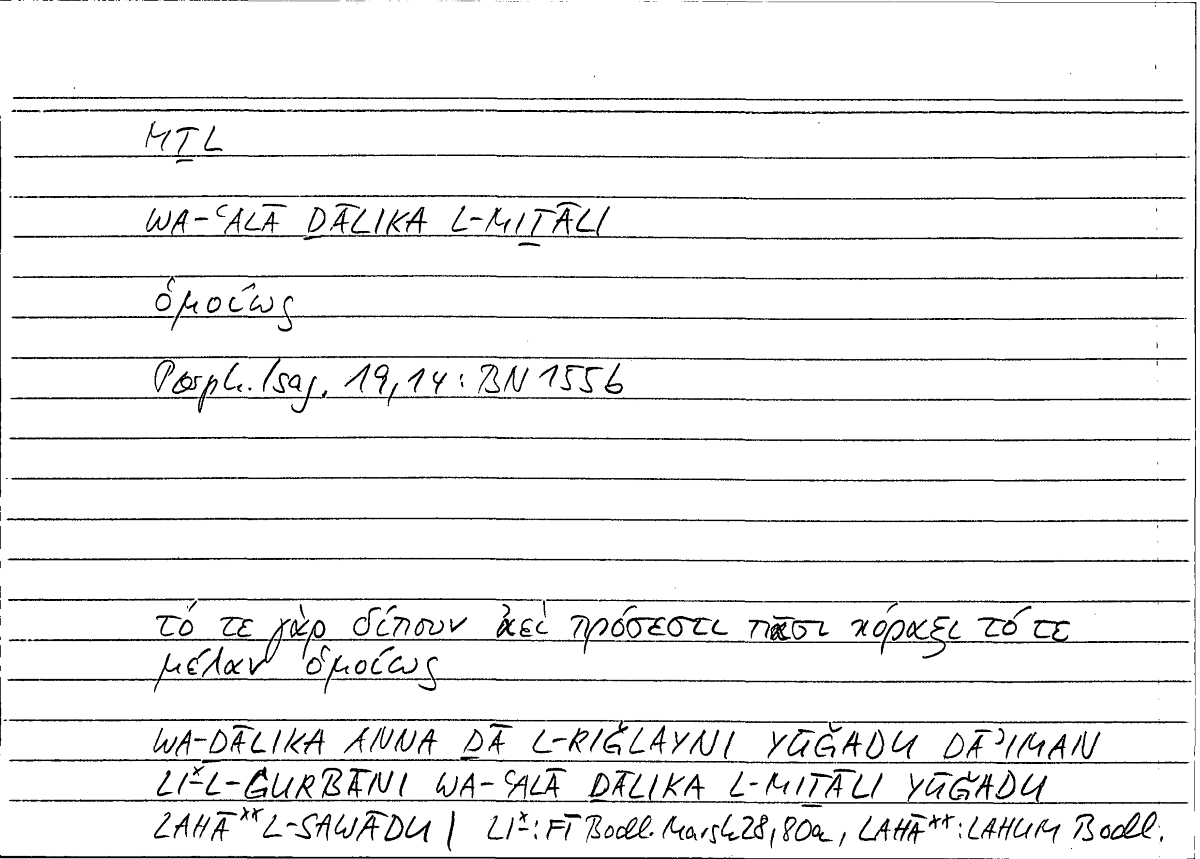 MṮL
WA-ʿALĀ ḎĀLIKA L-MIṮĀLI
ὁμοίως
Porph. Isag. 19,14 : BN 155b
τό τε γὰρ δίπουν ἀεὶ πρόσεστι πᾶσι κόραξι τό τε
μέλαν ὁμοίως
WA-ḎĀLIKA ANNA ḎĀ L-RIǦLAYNI YŪǦADU DĀʾIMAN
LIˣ-L-ĠURBĀNI WA-ʿALĀ ḎĀLIKA L-MIṮĀLI YŪǦADU
LAHĀˣˣ L-SAWĀDU | LIˣ: FĪ Bodl. Marsh 28, 80a, LAHĀˣˣ: LAHUM Bodl.